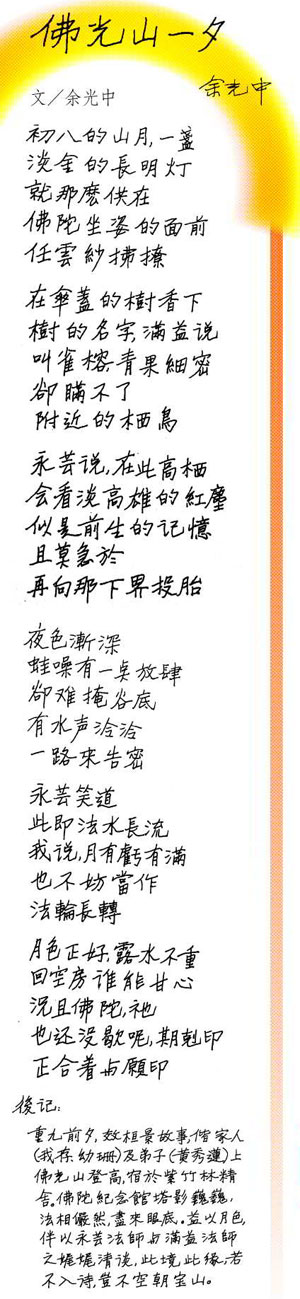 佛光山一夕
余光中
文／余光中
初八的山月,一盞
淡金的長明灯
就那麽供在
佛陀坐姿的面前
任雲紗拂撩
在傘蓋的樹香下
樹的名字,滿益说
叫雀榕,青果細密
卻瞞不了
附近的栖鳥
永芸说,在此高栖
会看淡高雄的紅塵
似是前生的记憶
且莫急於
再向那下界投胎
夜色漸深
蛙噪有一桌放肆
卻难掩谷底
有水声冷冷
一路來告密
永芸笑道
此即法水長流
我说,月有虧有滿
也不妨當作
法輪長轉
月色正好,露水不重
回空房谁能甘心
況且佛陀,祂
也还没歇呢,期剋印
正合着与願印
後记:
重九前夕,效桓景故事,偕家人
(我存幼珊)及弟子(黄秀蓮)上
佛光山登高,宿於紫竹林精
舍。佛陀紀念館塔影巍巍,
法相儼然,盡來眼底。益以月色,
伴以永芸法師与滿益法師
之娓娓清谈,此境此缘,若
不入诗,豈不空朝宝山。